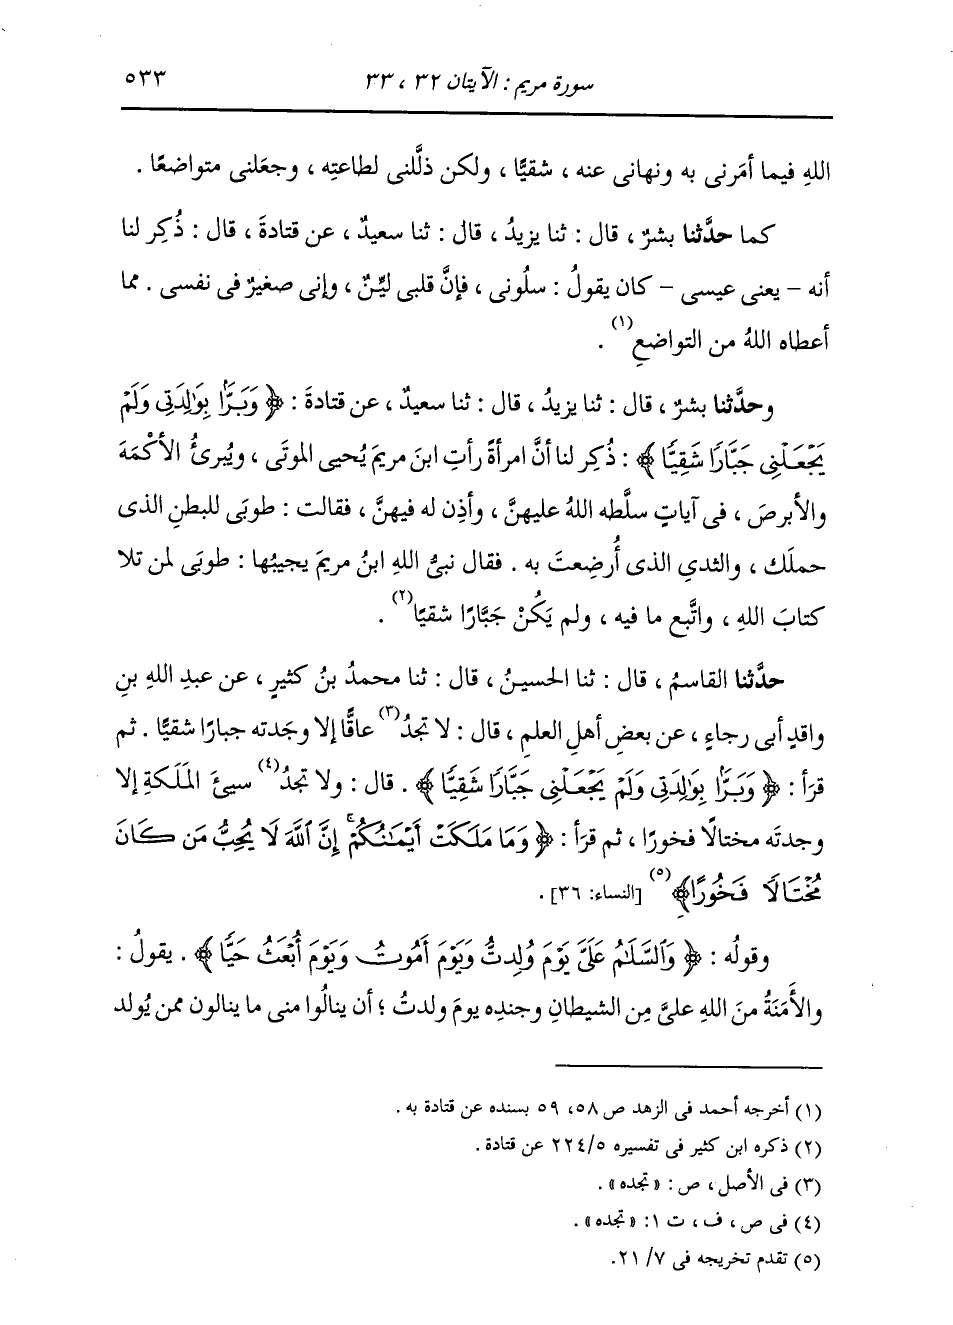 سورة مريم : الآيتان ٣٢ ، ٣٣ ٥٣٣
اللهِ فيما أمَرنى به ونهانى عنه ، شقيًّا ، ولكن ذلَّلنى لطاعتِه ، وجعَلنى متواضعًا .
كما حدَّثنا بشرٌ ، قال : ثنا يزيدُ ، قال : ثنا سعيدٌ ، عن قتادةَ ، قال : ذُكِر لنا
أنه - يعنى عيسى - كان يقولُ : سلُونى ، فإنَّ قلبى ليِّنٌ ، وإنى صغيرٌ فى نفسى . مما
أعطاه اللهُ من التواضعِ(١) .
وحدَّثنا بشرٌ ، قال : ثنا يزيدُ ، قال : ثنا سعيدٌ ، عن قتادةَ : ﴿ وَبَرًّا بِوَٰلِدَتِى وَلَمْ
يَجْعَلْنِى جَبَّارًا شَقِيًّا ﴾ : ذُكِر لنا أنَّ امرأةً رأتِ ابنَ مريمَ يُحيى الموتَى ، ويُبرئُ الأكْمَهَ
والأبرصَ ، فى آياتٍ سلَّطه اللهُ عليهنَّ ، وأذِن له فيهنَّ ، فقالت : طوبَى للبطنِ الذى
حملَك ، والثدىِ الذى أُرضِعتَ به . فقال نبىُّ اللهِ ابنُ مريمَ يجيبُها : طوبَى لمن تلا
كتابَ اللهِ ، واتَّبع ما فيه ، ولم يَكُنْ جَبَّارًا شقيًا(٢) .
حدَّثنا القاسمُ ، قال : ثنا الحسينُ ، قال : ثنا محمدُ بنُ كثيرٍ ، عن عبدِ اللهِ بنِ
واقدٍ أبى رجاءٍ ، عن بعضِ أهلِ العلمِ ، قال : لا تجدُ(٣) عاقًّا إلا وجَدته جبارًا شقيًّا . ثم
قرَأ : ﴿ وَبَرًّا بِوَٰلِدَتِى وَلَمْ يَجْعَلْنِى جَبَّارًا شَقِيًّا ﴾ . قال : ولا تجدُ(٤) سيئَ المَلَكةِ إلا
وجدتَه مختالًا فخورًا ، ثم قرَأ : ﴿ وَمَا مَلَكَتْ أَيْمَٰنُكُمْ ۚ إِنَّ ٱللَّهَ لَا يُحِبُّ مَن كَانَ
مُخْتَالًا فَخُورًا ﴾(٥) [النساء: ٣٦] .
وقولُه : ﴿ وَٱلسَّلَٰمُ عَلَىَّ يَوْمَ وُلِدتُّ وَيَوْمَ أَمُوتُ وَيَوْمَ أُبْعَثُ حَيًّا ﴾ . يقولُ :
والأَمَنَةُ منَ اللهِ علىَّ مِن الشيطانِ وجندِه يومَ ولدتُ ؛ أن ينالُوا منى ما ينالون ممن يُولد
(١) أخرجه أحمد فى الزهد ص ٥٨، ٥٩ بسنده عن قتادة به .
(٢) ذكره ابن كثير فى تفسيره ٢٢٤/٥ عن قتادة .
(٣) فى الأصل ، ص : «تجده» .
(٤) فى ص ، ف ، ت ١ : «تجده» .
(٥) تقدم تخريجه فى ٧/ ٢١.